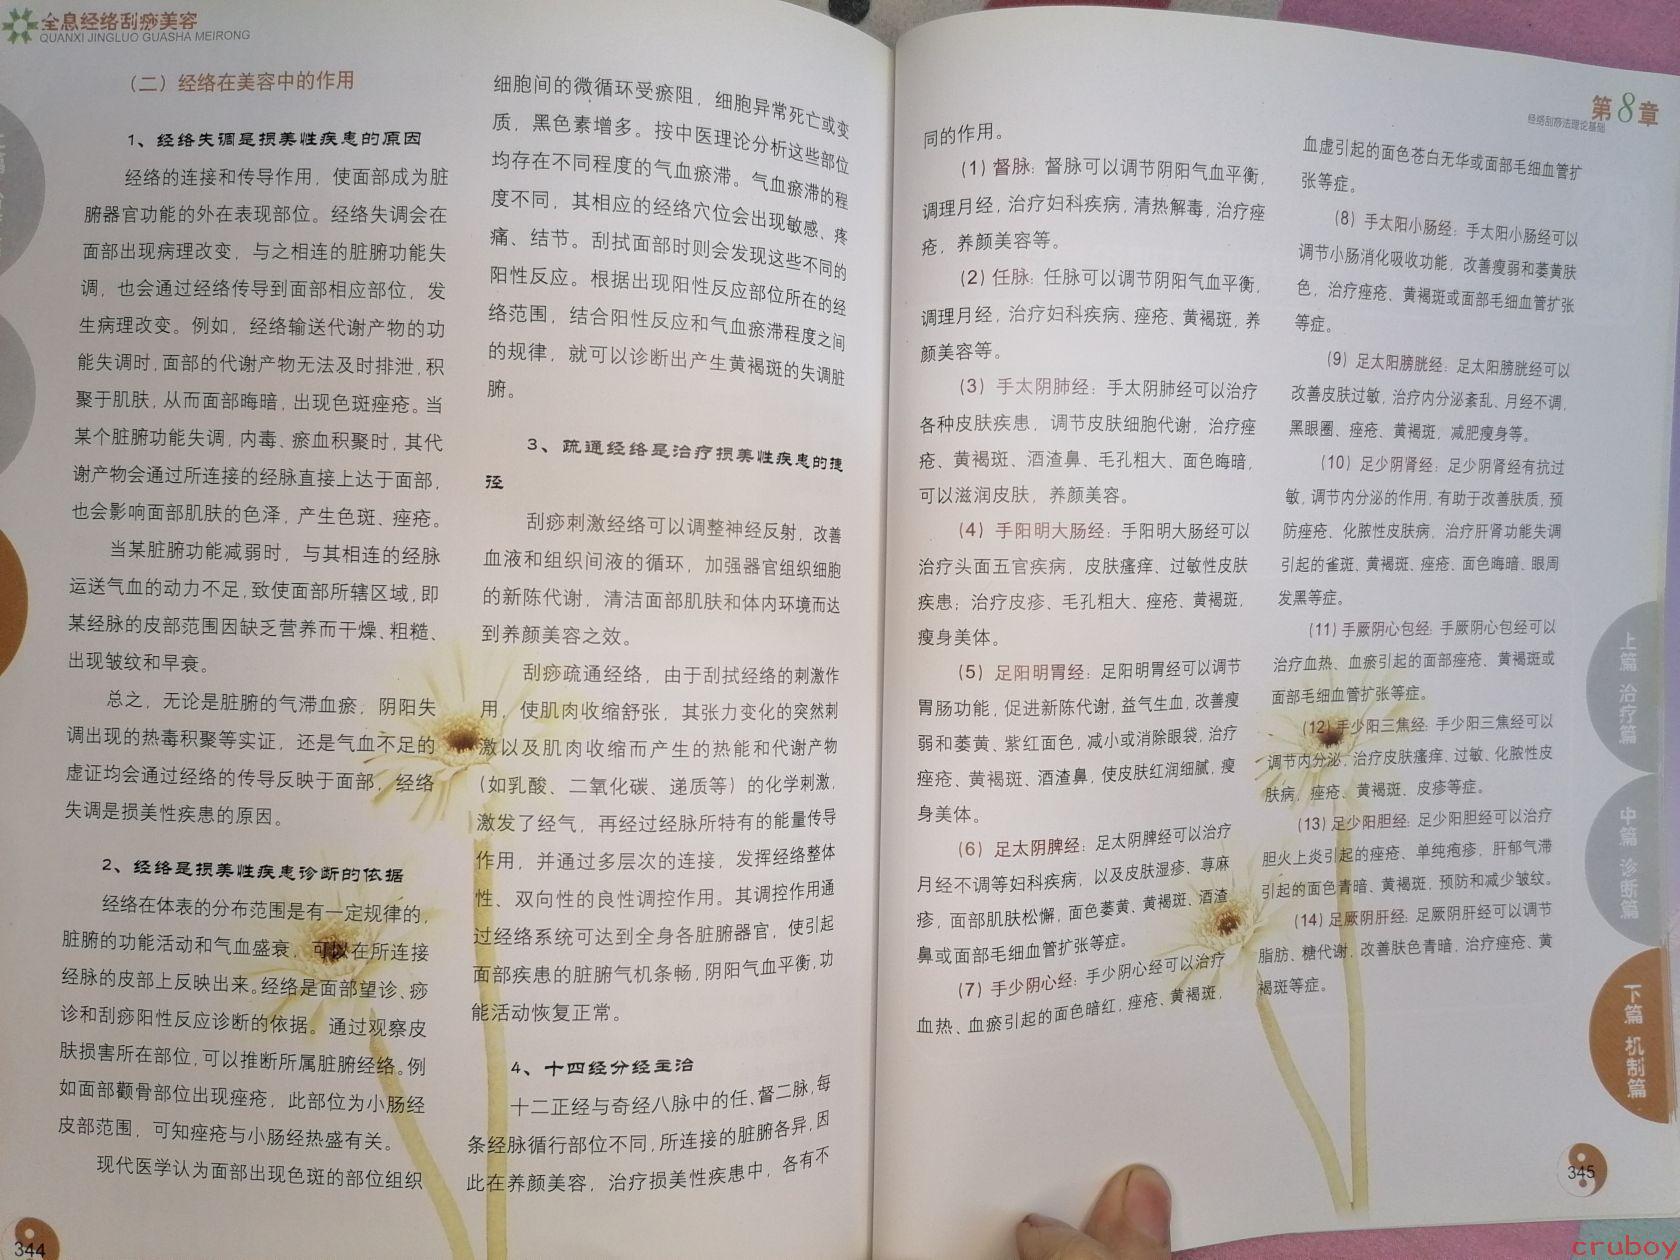 全息经络刮痧美容
QUANXI JINGLUO GUASHA MEIRONG
（二）经络在美容中的作用
1、经络失调是损美性疾患的原因
经络的连接和传导作用，使面部成为脏
腑器官功能的外在表现部位。经络失调会在
面部出现病理改变，与之相连的脏腑功能失
调，也会通过经络传导到面部相应部位，发
生病理改变。例如，经络输送代谢产物的功
能失调时，面部的代谢产物无法及时排泄，积
聚于肌肤，从而面部晦暗，出现色斑痤疮。当
某个脏腑功能失调，内毒、瘀血积聚时，其代
谢产物会通过所连接的经脉直接上达于面部，
也会影响面部肌肤的色泽，产生色斑、痤疮。
当某脏腑功能减弱时，与其相连的经脉
运送气血的动力不足，致使面部所辖区域，即
某经脉的皮部范围因缺乏营养而干燥、粗糙、
出现皱纹和早衰。
总之，无论是脏腑的气滞血瘀，阴阳失
调出现的热毒积聚等实证，还是气血不足的
虚证均会通过经络的传导反映于面部，经络
失调是损美性疾患的原因。
2、经络是损美性疾患诊断的依据
经络在体表的分布范围是有一定规律的，
脏腑的功能活动和气血盛衰，可以在所连接
经脉的皮部上反映出来。经络是面部望诊、痧
诊和刮痧阳性反应诊断的依据。通过观察皮
肤损害所在部位，可以推断所属脏腑经络。例
如面部颧骨部位出现痤疮，此部位为小肠经
皮部范围，可知痤疮与小肠经热盛有关。
现代医学认为面部出现色斑的部位组织
344
细胞间的微循环受瘀阻，细胞异常死亡或变
质，黑色素增多。按中医理论分析这些部位
均存在不同程度的气血瘀滞。气血瘀滞的程
度不同，其相应的经络穴位会出现敏感、疼
痛、结节。刮拭面部时则会发现这些不同的
阳性反应。根据出现阳性反应部位所在的经
络范围，结合阳性反应和气血瘀滞程度之间
的规律，就可以诊断出产生黄褐斑的失调脏
腑。
3、疏通经络是治疗损美性疾患的捷
径
刮痧刺激经络可以调整神经反射，改善
血液和组织间液的循环，加强器官组织细胞
的新陈代谢，清洁面部肌肤和体内环境而达
到养颜美容之效。
刮痧疏通经络，由于刮拭经络的刺激作
用，使肌肉收缩舒张，其张力变化的突然刺
激以及肌肉收缩而产生的热能和代谢产物
（如乳酸、二氧化碳、递质等）的化学刺激，
激发了经气，再经过经脉所特有的能量传导
作用，并通过多层次的连接，发挥经络整体
性、双向性的良性调控作用。其调控作用通
过经络系统可达到全身各脏腑器官，使引起
面部疾患的脏腑气机条畅，阴阳气血平衡，功
能活动恢复正常。
4、十四经分经主治
十二正经与奇经八脉中的任、督二脉，每
条经脉循行部位不同，所连接的脏腑各异，因
此在养颜美容，治疗损美性疾患中，各有不
第8章
经络刮痧法理论基础
同的作用。
（1）督脉：督脉可以调节阴阳气血平衡，
调理月经，治疗妇科疾病，清热解毒，治疗痤
疮，养颜美容等。
（2）任脉：任脉可以调节阴阳气血平衡，
调理月经，治疗妇科疾病、痤疮、黄褐斑，养
颜美容等。
（3）手太阴肺经：手太阴肺经可以治疗
各种皮肤疾患，调节皮肤细胞代谢，治疗痤
疮、黄褐斑、酒渣鼻、毛孔粗大、面色晦暗，
可以滋润皮肤，养颜美容。
（4）手阳明大肠经：手阳明大肠经可以
治疗头面五官疾病，皮肤瘙痒、过敏性皮肤
疾患；治疗皮疹、毛孔粗大、痤疮、黄褐斑，
瘦身美体。
（5）足阳明胃经：足阳明胃经可以调节
胃肠功能，促进新陈代谢，益气生血，改善瘦
弱和萎黄、紫红面色，减小或消除眼袋，治疗
痤疮、黄褐斑、酒渣鼻，使皮肤红润细腻，瘦
身美体。
（6）足太阴脾经：足太阴脾经可以治疗
月经不调等妇科疾病，以及皮肤湿疹、荨麻
疹，面部肌肤松懈，面色萎黄、黄褐斑、酒渣
鼻或面部毛细血管扩张等症。
（7）手少阴心经：手少阴心经可以治疗
血热、血瘀引起的面色暗红，痤疮、黄褐斑，
血虚引起的面色苍白无华或面部毛细血管扩
张等症。
（8）手太阳小肠经：手太阳小肠经可以
调节小肠消化吸收功能，改善瘦弱和萎黄肤
色，治疗痤疮、黄褐斑或面部毛细血管扩张
等症。
（9）足太阳膀胱经：足太阳膀胱经可以
改善皮肤过敏，治疗内分泌紊乱、月经不调，
黑眼圈、痤疮、黄褐斑，减肥瘦身等。
（10）足少阴肾经：足少阴肾经有抗过
敏，调节内分泌的作用，有助于改善肤质，预
防痤疮、化脓性皮肤病，治疗肝肾功能失调
引起的雀斑、黄褐斑、痤疮、面色晦暗、眼周
发黑等症。
（11）手厥阴心包经：手厥阴心包经可以
治疗血热、血瘀引起的面部痤疮、黄褐斑或
面部毛细血管扩张等症。
（12）手少阳三焦经：手少阳三焦经可以
调节内分泌，治疗皮肤瘙痒、过敏、化脓性皮
肤病，痤疮、黄褐斑、皮疹等症。
（13）足少阳胆经：足少阳胆经可以治疗
胆火上炎引起的痤疮、单纯疱疹，肝郁气滞
引起的面色青暗、黄褐斑，预防和减少皱纹。
（14）足厥阴肝经：足厥阴肝经可以调节
脂肪、糖代谢，改善肤色青暗，治疗痤疮、黄
褐斑等症。
上篇 治疗篇
中篇 诊断篇
下篇 机制篇
345
cruboy